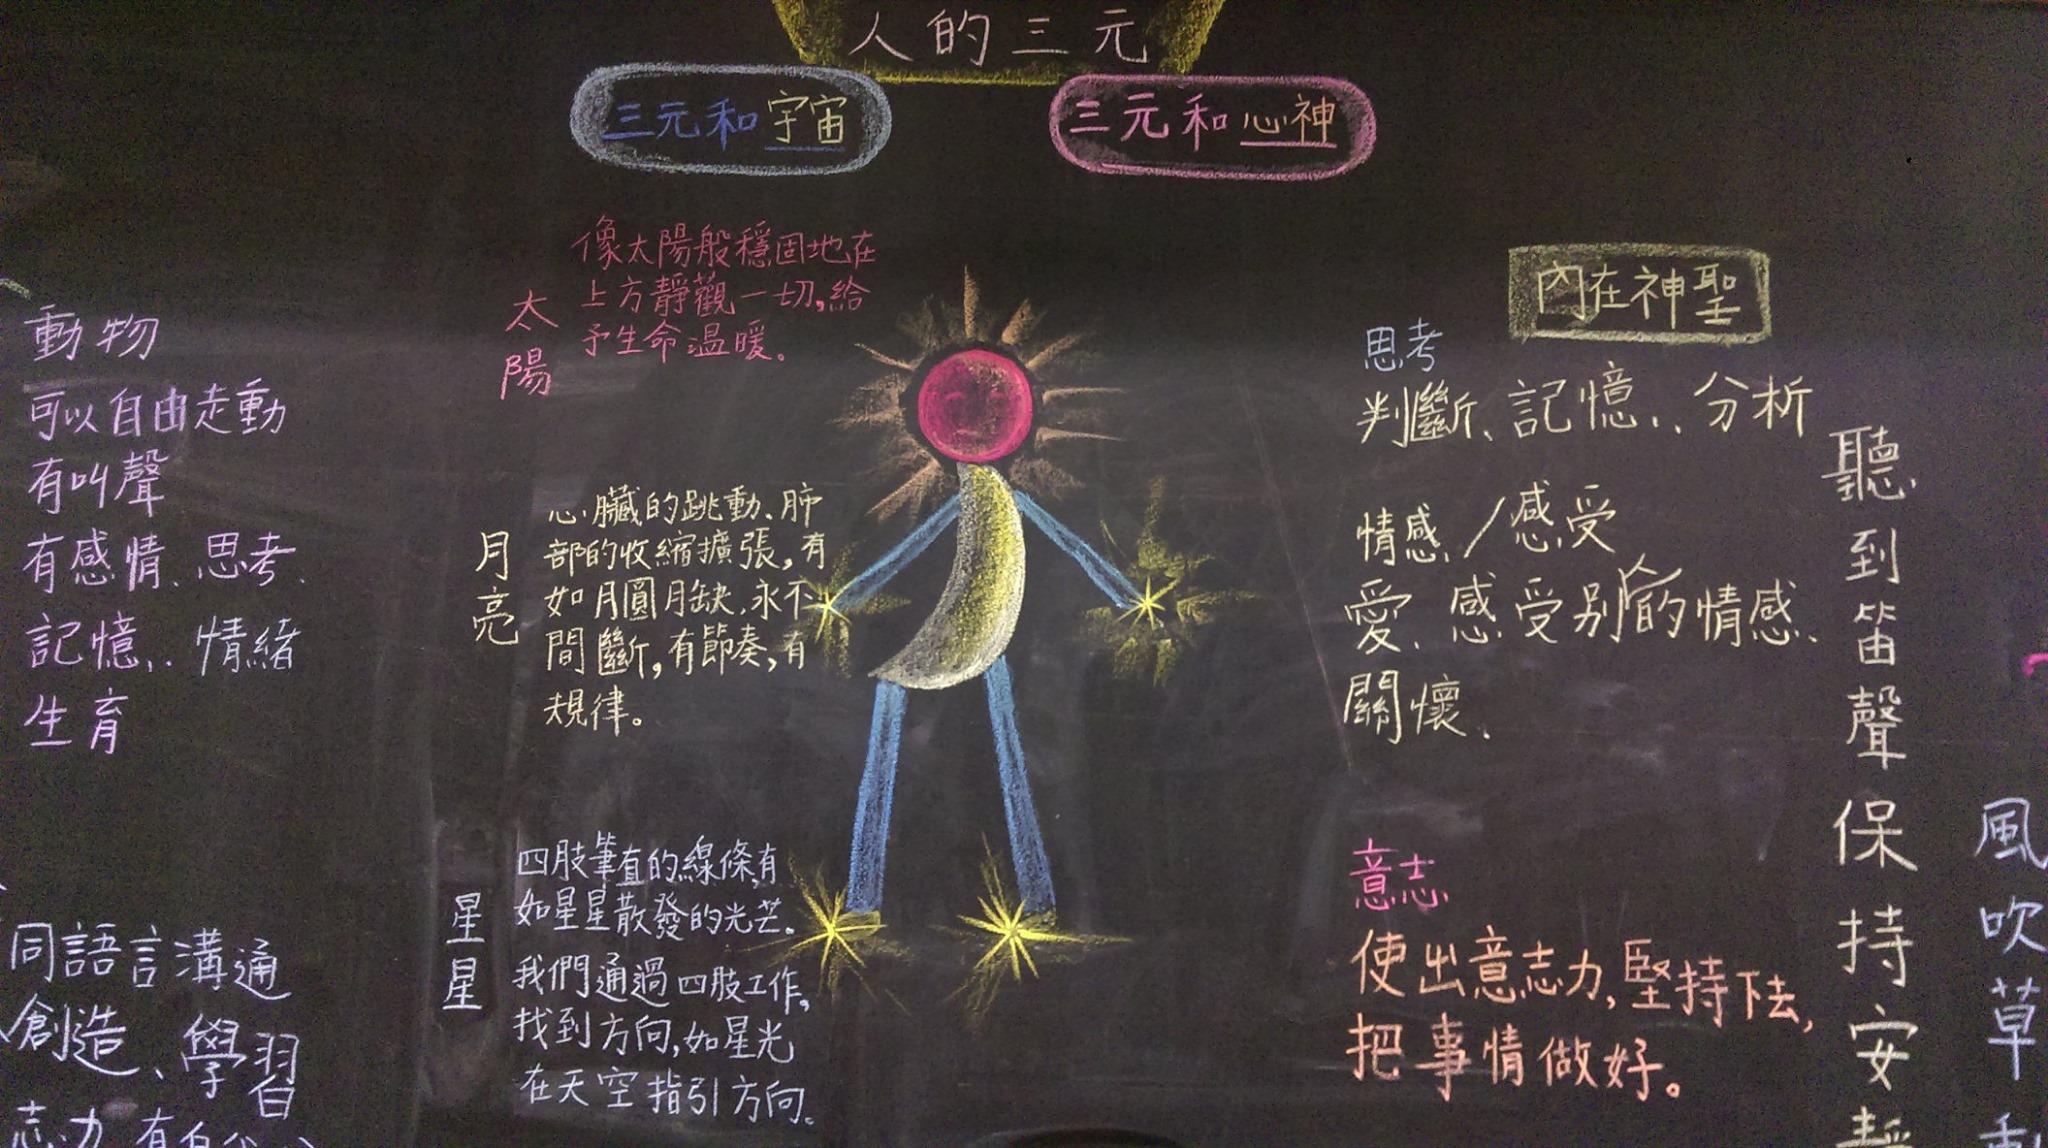 人的三元
三元和宇宙
三元和心神
動物
可以自由走動
有叫聲
有感情、思考、
記憶、情緒
生育
同語言溝通
創造、學習
志力
太陽
像太陽般穩固地在
上方靜觀一切,給
予生命溫暖。
月亮
心臟的跳動、肺
部的收縮擴張,有
如月圓月缺,永不
間斷,有節奏,有
規律。
星星
四肢筆直的線條,有
如星星散發的光芒。
我們通過四肢工作,
找到方向,如星光
在天空指引方向。
內在神聖
思考
判斷、記憶、分析
情感/感受
愛、感受別人的情感、
關懷、
意志
使出意志力,堅持下去,
把事情做好。
聽到笛聲保持安靜
風吹草動